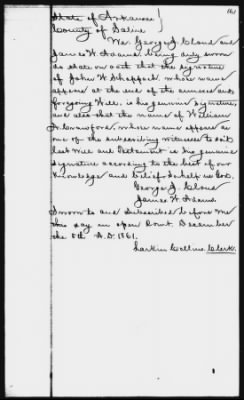 161
State of Arkansas }
County of Saline }
We George J. Cloud and
James W. Adams being duly sworn
do state on oath that the signature
of John W. Sheppard whose name
appears at the end of the annexed and
foregoing Will. is his genuine signature
and also that the name of William
A. Crawford, whose name appears as
one of the subscribing witnesses to said
last Will and Testament is his genuine
signature according to the best of our
Knowledge and belief So help us God.
George J. Cloud
James W. Adams
Sworn to and subscribed before me
this day in open Court. December
the 5th A.D. 1861.
Larkin Collins Clerk.